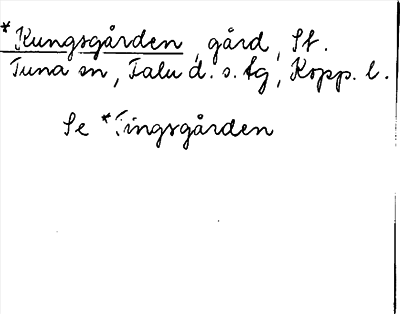 *Kungsgården, gård, St.
Tuna sn, Falu d. s. tg, Kopp. l.
Se *Tingsgården